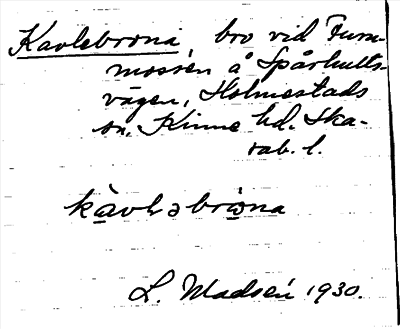 Kavlebrona, bro vid Furu-
mossen å Spårhults-
vägen, Holmestads
sn, Kinne hd. Ska-
rab. l.
kavləbrona
L. Madsén 1930.